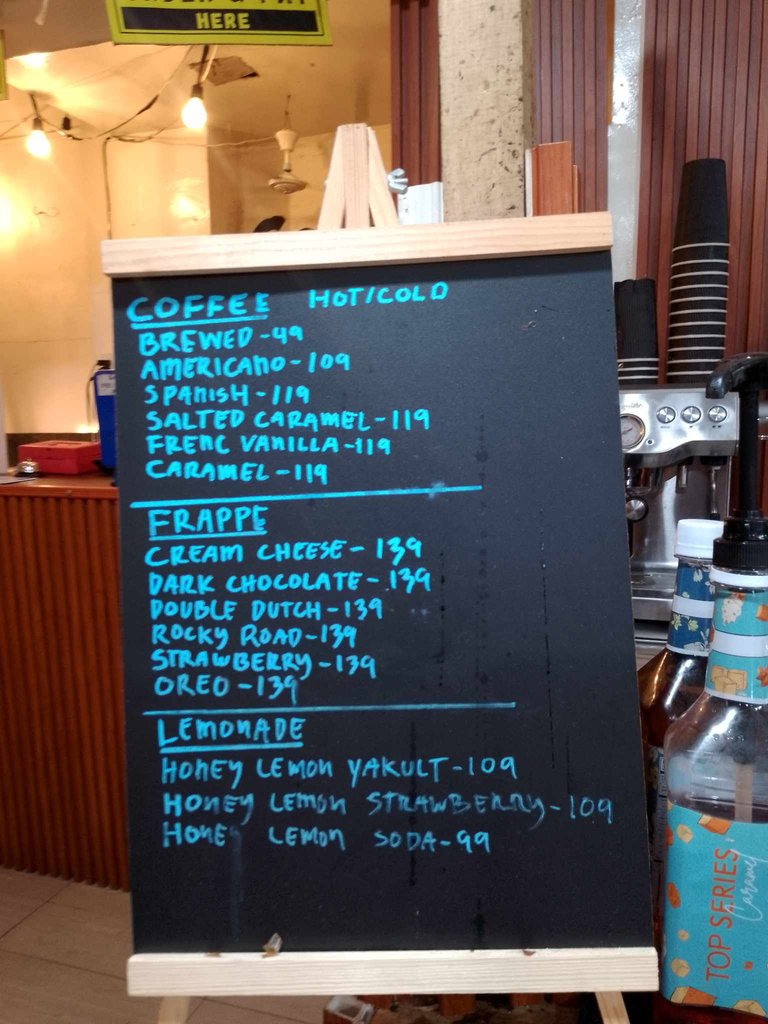 HERE
COFFEE HOT/COLD
BREWED-49
AMERICANO-109
SPANISH-119
SALTED CARAMEL-119
FRENC VANILLA-119
CARAMEL-119
FRAPPE
CREAM CHEESE-139
DARK CHOCOLATE-139
DOUBLE DUTCH-139
ROCKY ROAD-139
STRAWBERRY-139
OREO-139
LEMONADE
HONEY LEMON YAKULT-109
HONEY LEMON STRAWBERRY-109
HONEY LEMON SODA-99
TOP SERIES
Caramel